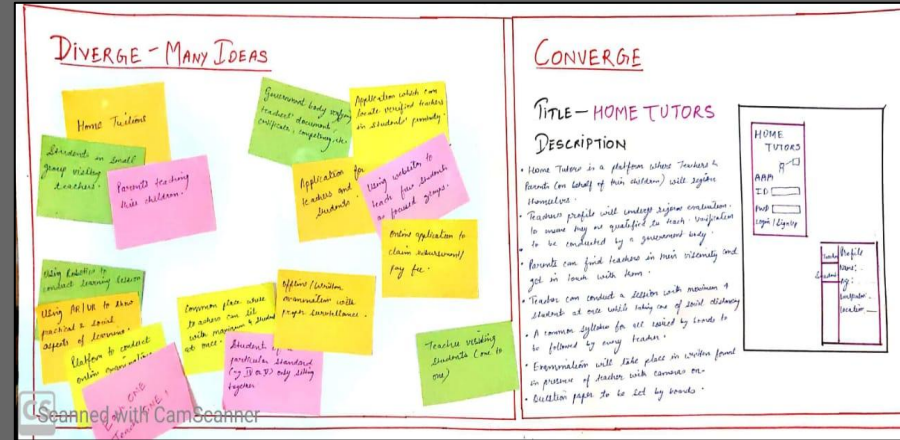 DIVERGE - MANY IDEAS
Home Tuitions
Students in small
group visiting
teachers.
Parents teaching
their children.
Government body
teachers' document,
certificate, competency, etc
Application which can
locate verified teachers
in students' proximity
Application for
teachers and
students
Using websites to
teach few students
as focused groups.
Online application to
claim reimbursement/
pay fee.
Using Robotics to
conduct learning lesson
Using AR/VR to show
practical & social
aspects of learning
Platform to conduct
online examination
ONE
Common place where
teachers can sit
with maximum 4 students
at once.
Offline/Written
examination with
proper surveillance.
Student of
particular standard
(eg IV or V) only sitting
together
Teacher visiting
students (one to
one)
Scanned with CamScanner
CS
CONVERGE
TITLE - HOME TUTORS
DESCRIPTION
• Home Tutors is a platform where Teachers &
Parents (on behalf of their children) will register
themselves.
• Teachers profile will undergo rigorous evaluation
to ensure they are qualified to teach. Verification
to be conducted by a government body.
• Parents can find teachers in their vicinity and
get in touch with them.
• Teacher can conduct a session with maximum 4
student at once while taking care of social distancing
• A common syllabus for all issued by boards to
be followed by every teacher.
• Examination will take place in written format
in presence of teacher with cameras on.
• Question paper to be set by boards.
HOME
TUTORS
ID
Pwd
Login/SignUp
Teacher
Student
Profile
Name:-
Location:-